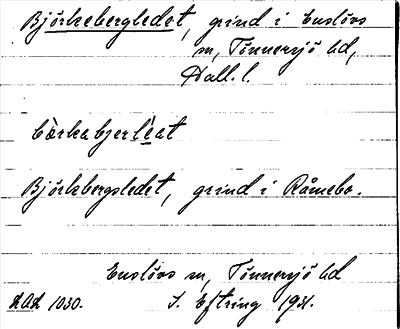 Björkebergledet, grind i Enslövs
sn, Tönnersjö hd,
Hall. l.
Björkbergsledet, grind i Råmebo.
Enslövs sn, Tönnersjö hd
1030. S. Eftring 1931.